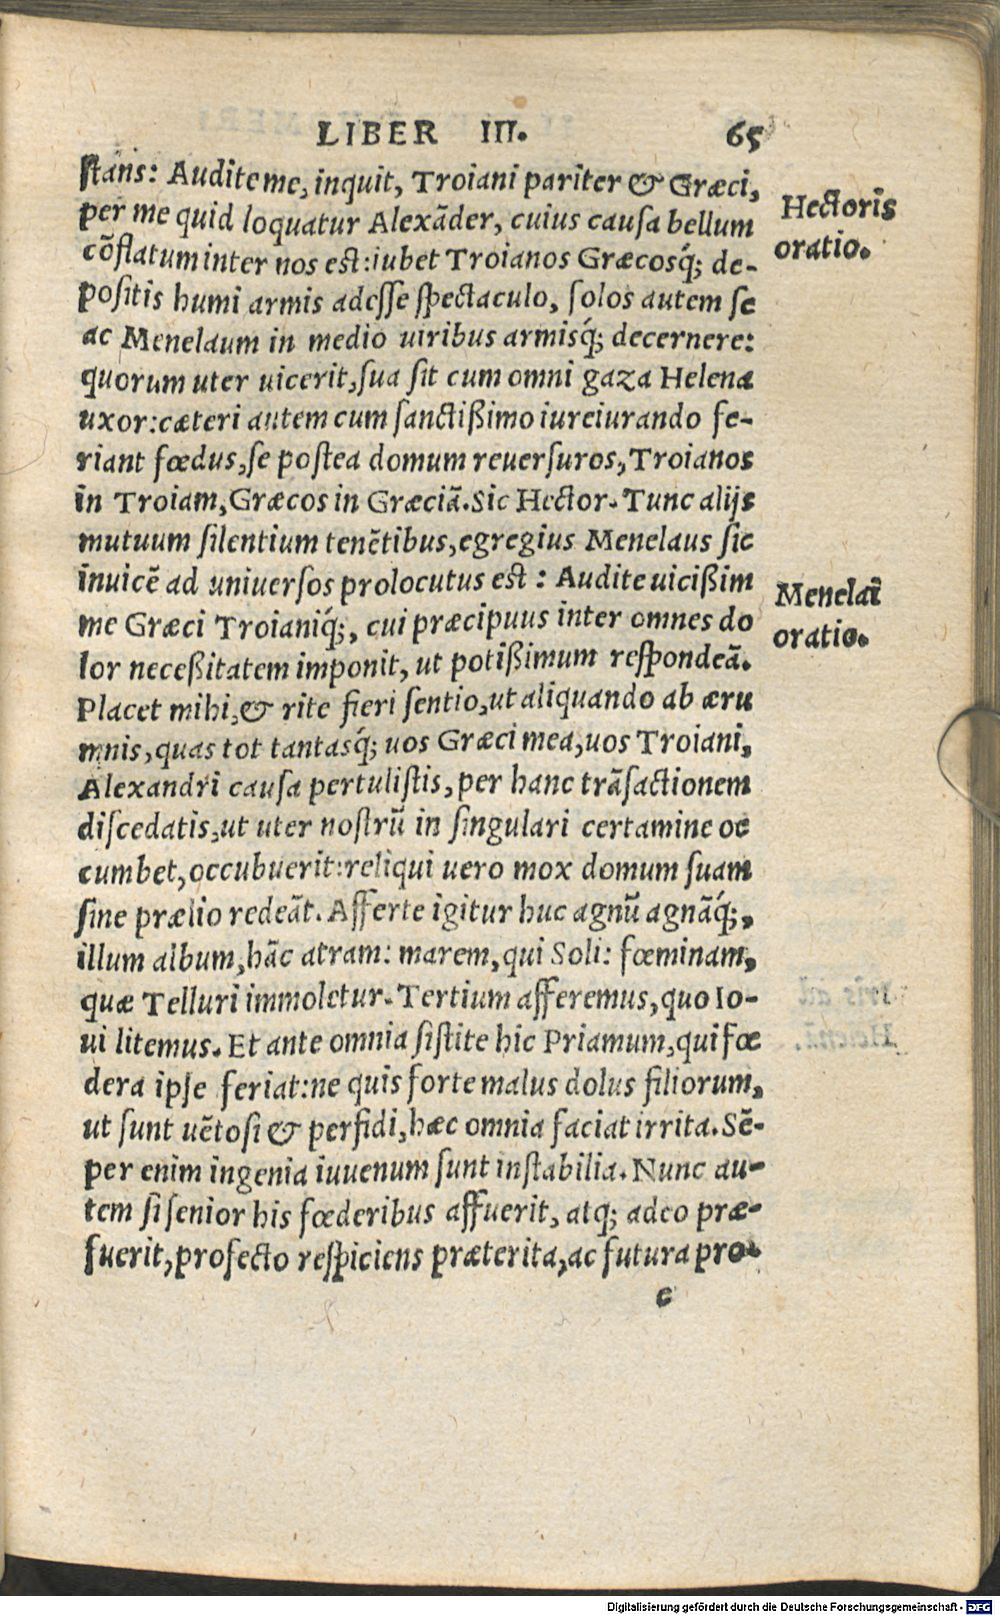 LIBER III. 65
stans: Audite me, inquit, Troiani pariter & Græci,
per me quid loquatur Alexāder, cuius causa bellum
cōflatum inter nos est: iubet Troianos Græcosq́; de-
positis humi armis adesse spectaculo, solos autem se
ac Menelaum in medio uiribus armisq́; decernere:
quorum uter uicerit, sua sit cum omni gaza Helena
uxor: cæteri autem cum sanctißimo iureiurando fe-
riant fœdus, se postea domum reuersuros, Troianos
in Troiam, Græcos in Græciā. Sic Hector. Tunc alijs
mutuum silentium tenētibus, egregius Menelaus sic
inuicē ad uniuersos prolocutus est: Audite uicißim
me Græci Troianiq́;, cui præcipuus inter omnes do
lor neceßitatem imponit, ut potißimum respondeā.
Placet mihi, & rite fieri sentio, ut aliquando ab æru
mnis, quas tot tantasq́; uos Græci mea, uos Troiani,
Alexandri causa pertulistis, per hanc trāsactionem
discedatis, ut uter nostrū in singulari certamine oc
cumbet, occubuerit: reliqui uero mox domum suam
sine prælio redeāt. Afferte igitur huc agnū agnāq́;,
illum album, hāc atram: marem, qui Soli: fœminam,
quæ Telluri immoletur. Tertium afferemus, quo Io-
ui litemus. Et ante omnia sistite hic Priamum, qui fœ
dera ipse feriat: ne quis forte malus dolus filiorum,
ut sunt uētosi & perfidi, hæc omnia faciat irrita. Sē-
per enim ingenia iuuenum sunt instabilia. Nunc au-
tem si senior his fœderibus affuerit, atq; adeo præ-
fuerit, profecto respiciens præterita, ac futura pro-
c
Hectoris
oratio.
Menelai
oratio.
Digitalisierung gefördert durch die Deutsche Forschungsgemeinschaft - DFG